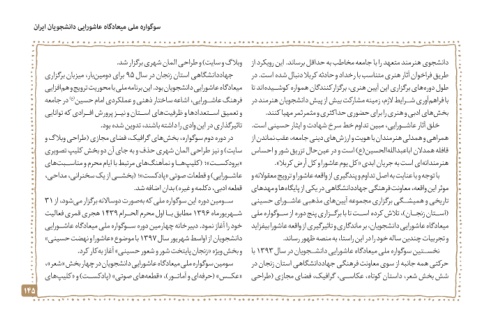 سوگواره ملی میعادگاه عاشورایی دانشجویان ایران
دانشجوی هنرمند متعهد را با جامعه مخاطب به حداقل برساند. این رویکرد از
طریق فراخوان آثار هنری متناسب با رخداد و حادثه کربلا دنبال شده است. در
طول دوره‌های برگزاری این آیین هنری، برگزار کنندگان همواره کوشیده‌اند تا
با فراهم‌آوری شرایط لازم، زمینه مشارکت بیش از پیش دانشجویان هنرمند در
بخش‌های ادبی و هنری را برای حضوری حداکثری و مثمرثمر مهیا کنند.
خلق آثار عاشورایی، مبین تداوم خط سرخ شهادت و ایثار حسینی است.
همراهی و همدلی هنرمندان با هویت و ارزش‌های دینی جامعه، عقب نماندن از
قافله همدلان اباعبدالله‌الحسین(ع) است و در عین حال تزریق شور و احساس
هنرمندانه‌ای است به جریان ابدی «کل یوم عاشورا و کل أرض کربلا».
با توجه و با عنایت به اصل تداوم و پندگیری از واقعه عاشورا و ترویج معقولانه و
موثر این واقعه، معاونت فرهنگی جهاددانشگاهی در یکی از پایگاه‌ها و مهدهای
تاریخی و همیشگی برگزاری مجموعه آیین‌های مذهبی عاشورای حسینی
(استان زنجان)، تلاش کرده است تا با برگزاری پنج دوره از سوگواره ملی
میعادگاه عاشورایی دانشجویان، بر ماندگاری و تاثیرگذاری از واقعه عاشورا بیفزاید
و تجربیات چندین ساله خود را در این راستا، به منصه ظهور رساند.
نخستین سوگواره ملی میعادگاه عاشورایی دانشجویان در سال ۱۳۹۳ با
حرکتی همه جانبه از سوی معاونت فرهنگی جهاددانشگاهی استان زنجان در
شش بخش شعر، داستان کوتاه، عکاسی، گرافیک، فضای مجازی (طراحی
وبلاگ و سایت) و طراحی المان شهری برگزار شد.
جهاددانشگاهی استان زنجان در سال ۹۵ برای دومین‌بار، میزبان برگزاری
میعادگاه عاشورایی دانشجویان بود. این برنامه ملی با محوریت ترویج و هم‌افزایی
فرهنگ عاشورایی، اشاعه ساختار ذهنی و عملکردی امام حسین(ع) در جامعه
و تعمیق استعدادها و ظرفیت‌های استان و نیز پرورش افرادی که توانایی
تاثیرگذاری در این وادی را داشته باشند، تدوین شده بود.
در دوره دوم سوگواره، بخش‌های گرافیک، فضای مجازی (طراحی وبلاگ و
سایت) و نیز طراحی المان شهری حذف و به جای آن دو بخش کلیپ تصویری
«برودکست»؛ (کلیپ‌ها و نماهنگ‌های مرتبط با ایام محرم و مناسبت‌های
عاشورایی) و قطعات صوتی «پادکست»؛ (بخشی از یک سخنرانی، مداحی،
قطعه ادبی، دکلمه و غیره) بدان اضافه شد.
سومین دوره این سوگواره ملی که به‌صورت دوسالانه برگزار می‌شود، از ۳۱
شهریورماه ۱۳۹۶ مطابق با اول محرم الحرام ۱۴۳۹ هجری قمری فعالیت
خود را آغاز نمود. دبیرخانه چهارمین دوره سوگواره ملی میعادگاه عاشورایی
دانشجویان از اواسط شهریور سال ۱۳۹۷ با موضوع «عاشورا و نهضت حسینی»
و بخش ویژه «زنجان پایتخت شور و شعور حسینی» آغاز به‌کار کرد.
سومین سوگواره ملی میعادگاه عاشورایی دانشجویان در چهار بخش «شعر»،
«عکس» (حرفه‌ای و آماتور)، «قطعه‌های صوتی» (پادکست) و «کلیپ‌های
۱۴۵